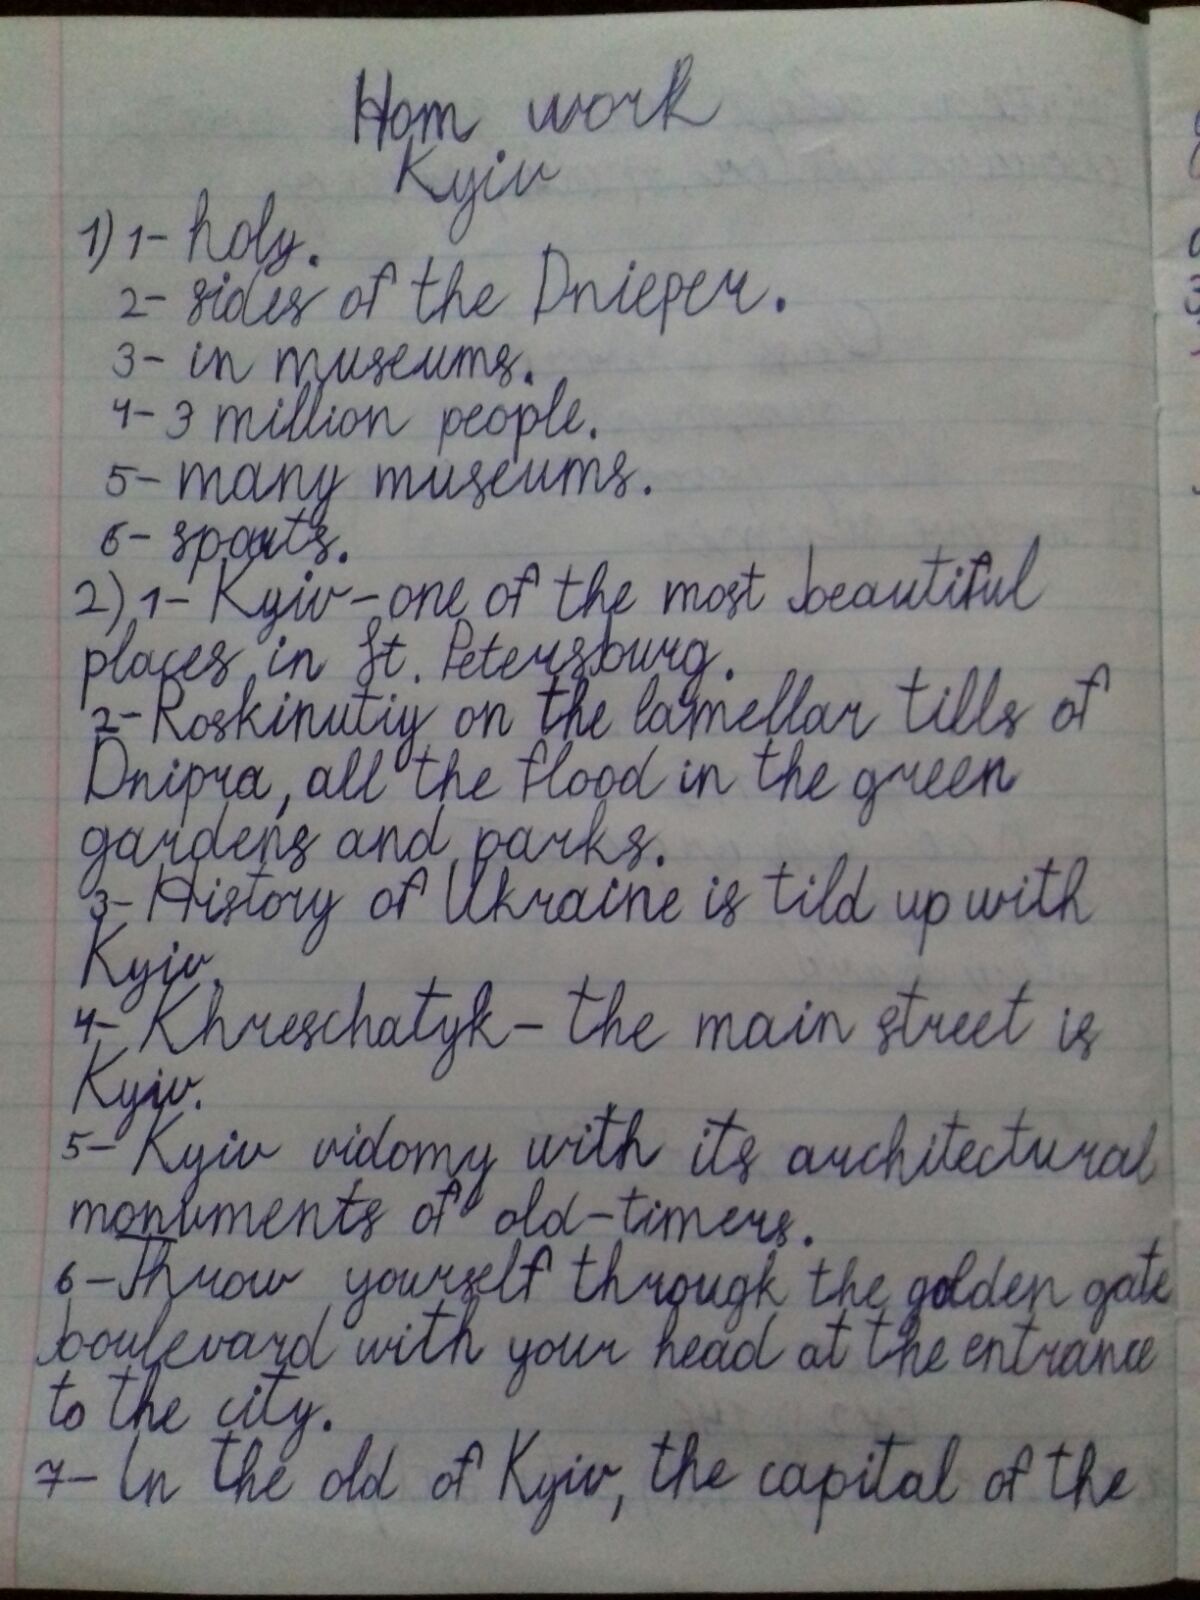 Hom work
Kyiv
1) 1- holy.
2- sides of the Dnieper.
3- in museums.
4- 3 million people.
5- many museums.
6- sports.
2) 1- Kyiv - one of the most beautiful
places in St. Petersburg.
2- Roskinutiy on the lamellar tills of
Dnipra, all the flood in the green
gardens and parks.
3- History of Ukraine is tild up with
Kyiv.
4- Khreschatyk - the main street is
Kyiv.
5- Kyiv vidomy with its architectural
monuments of old-timers.
6- Throw yourself through the golden gate
boulevard with your head at the entrance
to the city.
7- In the old of Kyiv, the capital of the